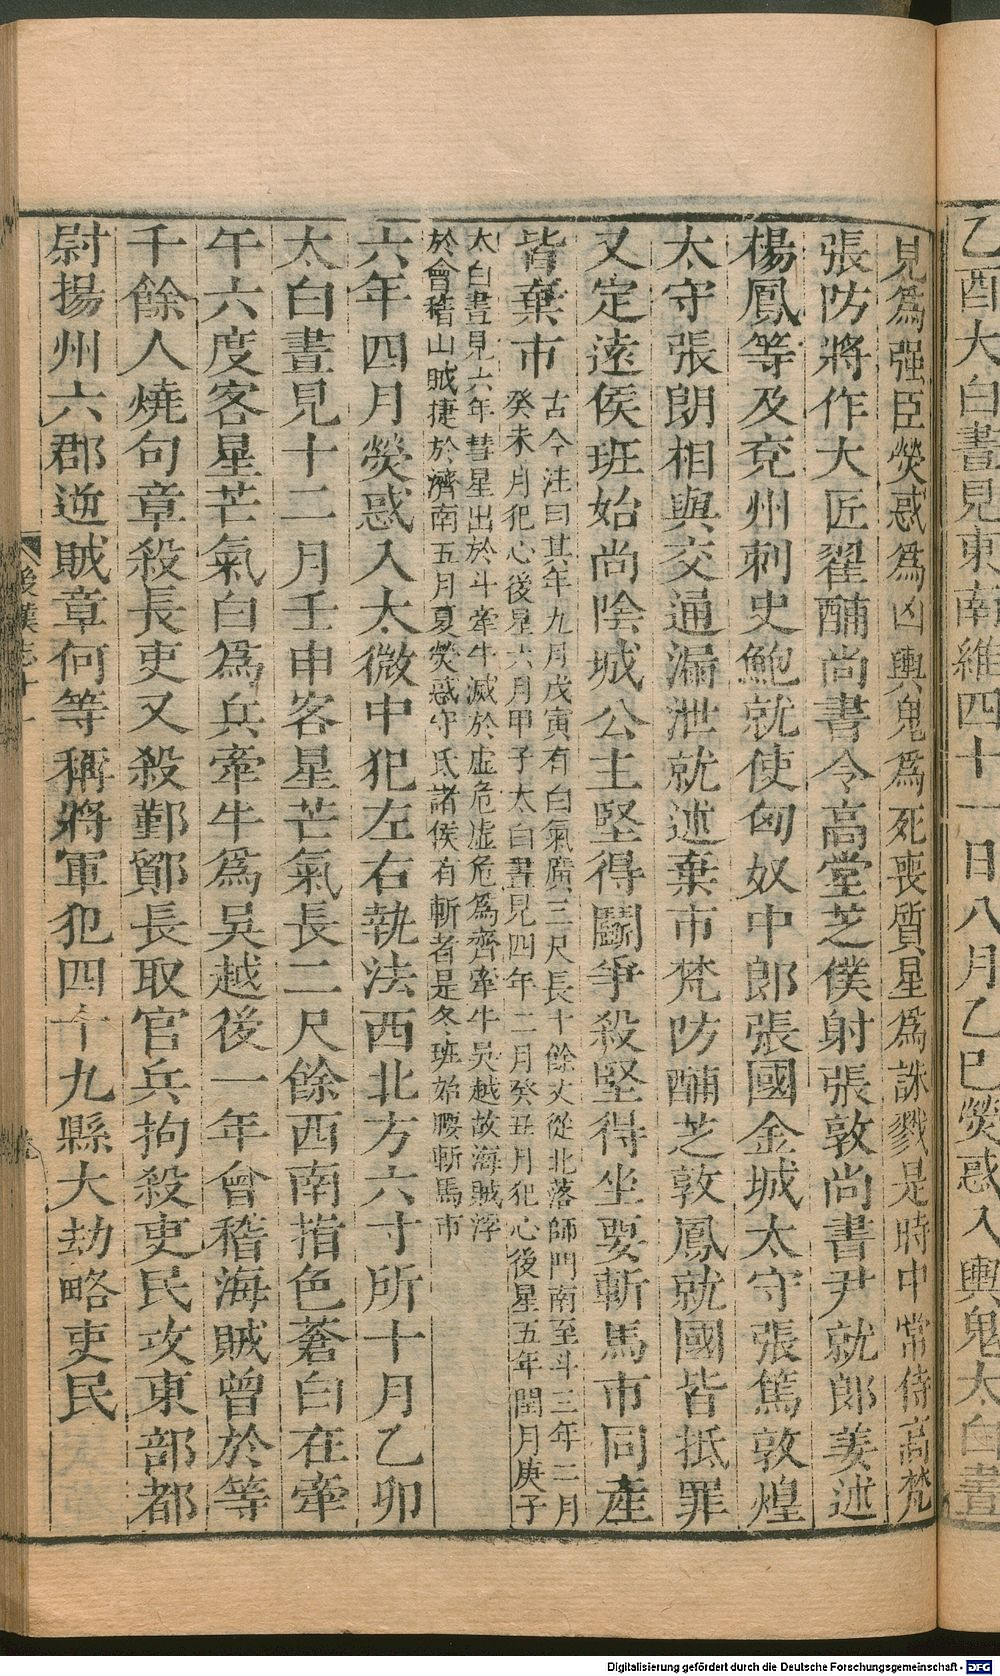 乙酉太白晝見東南維四十一日八月乙巳熒惑入輿鬼太白晝
見爲强臣熒惑爲凶輿鬼爲死喪質星爲誅戮是時中常侍高梵
張防將作大匠翟酺尚書令高堂芝僕射張敦尚書尹就郎姜述
楊鳳等及兗州刺史鮑就使匈奴中郎張國金城太守張篤敦煌
太守張朗相與交通漏泄就述棄市梵防酺芝敦鳳就國皆抵罪
又定遠侯班始尚陰城公主堅得鬭爭殺堅得坐要斬馬市同產
皆棄市
古今注曰其年九月戊寅有白氣廣三尺長十餘丈從北落師門南至斗三年二月
癸未月犯心後星六月甲子太白晝見四年二月癸丑月犯心後星五年閏月庚子
太白晝見六年彗星出於斗牽牛滅於虛危虛危爲齊牽牛吳越故海賊浮
於會稽山賊捷於濟南五月夏熒惑守氐諸侯有斬者是冬班始腰斬馬市
六年四月熒惑入太微中犯左右執法西北方六寸所十月乙卯
太白晝見十二月壬申客星芒氣長二尺餘西南指色蒼白在牽
牛六度客星芒氣白爲兵牽牛爲吳越後一年會稽海賊曾於等
千餘人燒句章殺長吏又殺鄞鄮長取官兵拘殺吏民攻東部都
尉揚州六郡逆賊章何等稱將軍犯四十九縣大劫略吏民
後漢志十一
Digitalisierung gefördert durch die Deutsche Forschungsgemeinschaft - DFG